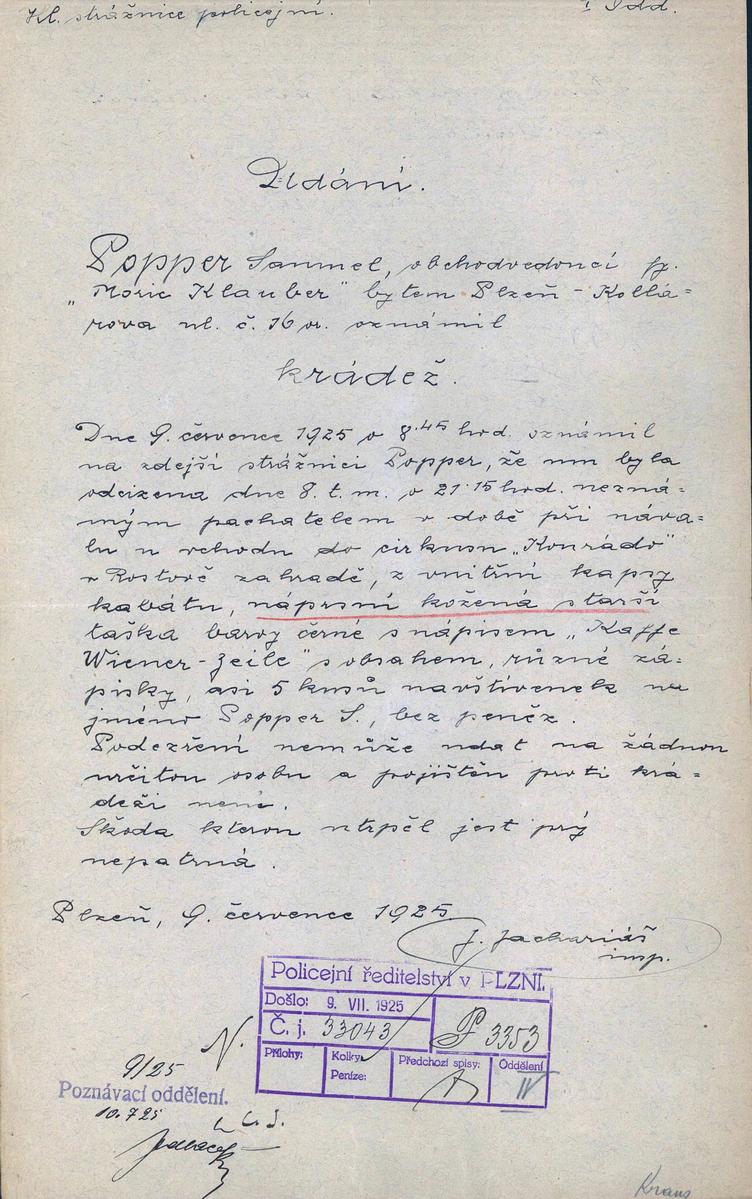 Hl. strážnice policejní. I Odd.
Udání.
Popper Samuel, obchodvedoucí fy.
„Moric Klauber" bytem Plzeň - Kollá=
rova ul. č. 16 oznámil
krádež.
Dne 9. července 1925 o 8.45 hod. oznámil
na zdejší strážnici Popper, že mu byla
odcizena dne 8. t. m. o 21.15 hod. nezná=
mým pachatelem v době při náva=
lu u vchodu do cirkusu „Konrádo"
v Rostově zahradě, z vnitřní kapsy
kabátu, náprsní kožená starší
taška barvy černé s nápisem „Kaffe
Wiener-Zeile" s obsahem, různé zá=
pisky, asi 5 kusů navštívenek na
jméno Popper S., bez peněz.
Podezření nemůže udat na žádnou
určitou osobu a pojištěn proti krá=
deži není.
Škoda kterou utrpěl jest prý
nepatrná.
Plzeň, 9. července 1925
J. Zachariáš
insp.
Policejní ředitelství v PLZNI.
Došlo: 9. VII. 1925
Č. j. 33043 P 3353
Přílohy: Kolky: Peníze: Předchozí spisy: Oddělení IV
N.
9/25
Poznávací oddělení.
10.7.25
Kraus